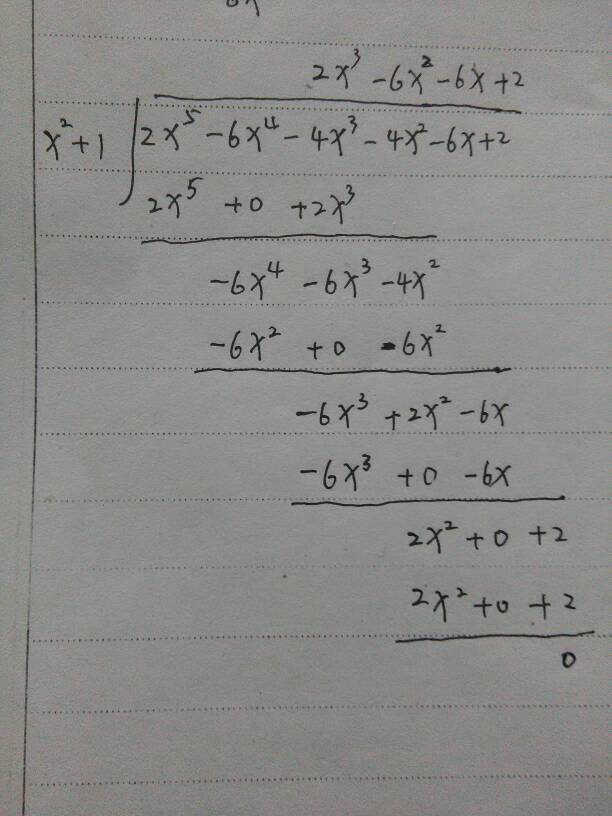 2x³ -6x² -6x +2
x² +1 2x⁵ -6x⁴ - 4x³ - 4x² -6x +2
2x⁵ +0 +2x³
-6x⁴ -6x³ -4x²
-6x² +0 -6x²
-6x³ +2x² -6x
-6x³ +0 -6x
2x² +0 +2
2x² +0 +2
0